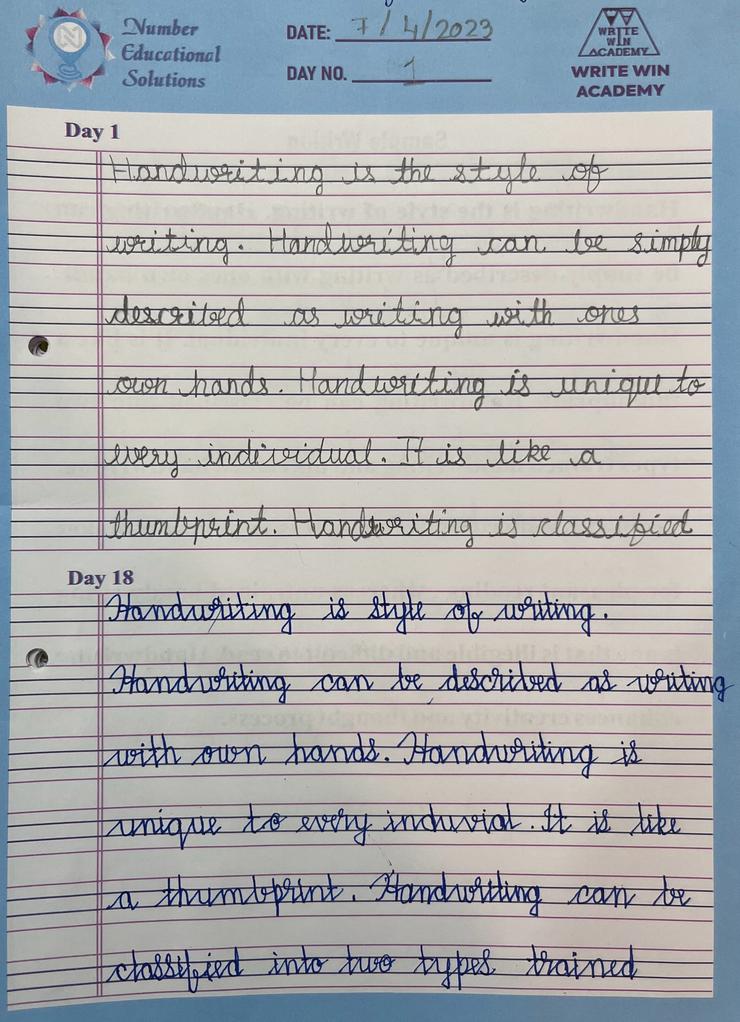 Number
Educational
Solutions
DATE: 7/4/2023
DAY NO. 1
WRITE
WIN
ACADEMY
WRITE WIN
ACADEMY
Day 1
Handwriting is the style of
writing. Handwriting can be simply
described as writing with ones
own hands. Handwriting is unique to
every individual. It is like a
thumbprint. Handwriting is classified
Day 18
Handwriting is style of writing.
Handwriting can be described as writing
with own hands. Handwriting is
unique to every induvial. It is like
a thumbprint. Handwriting can be
classified into two types trained